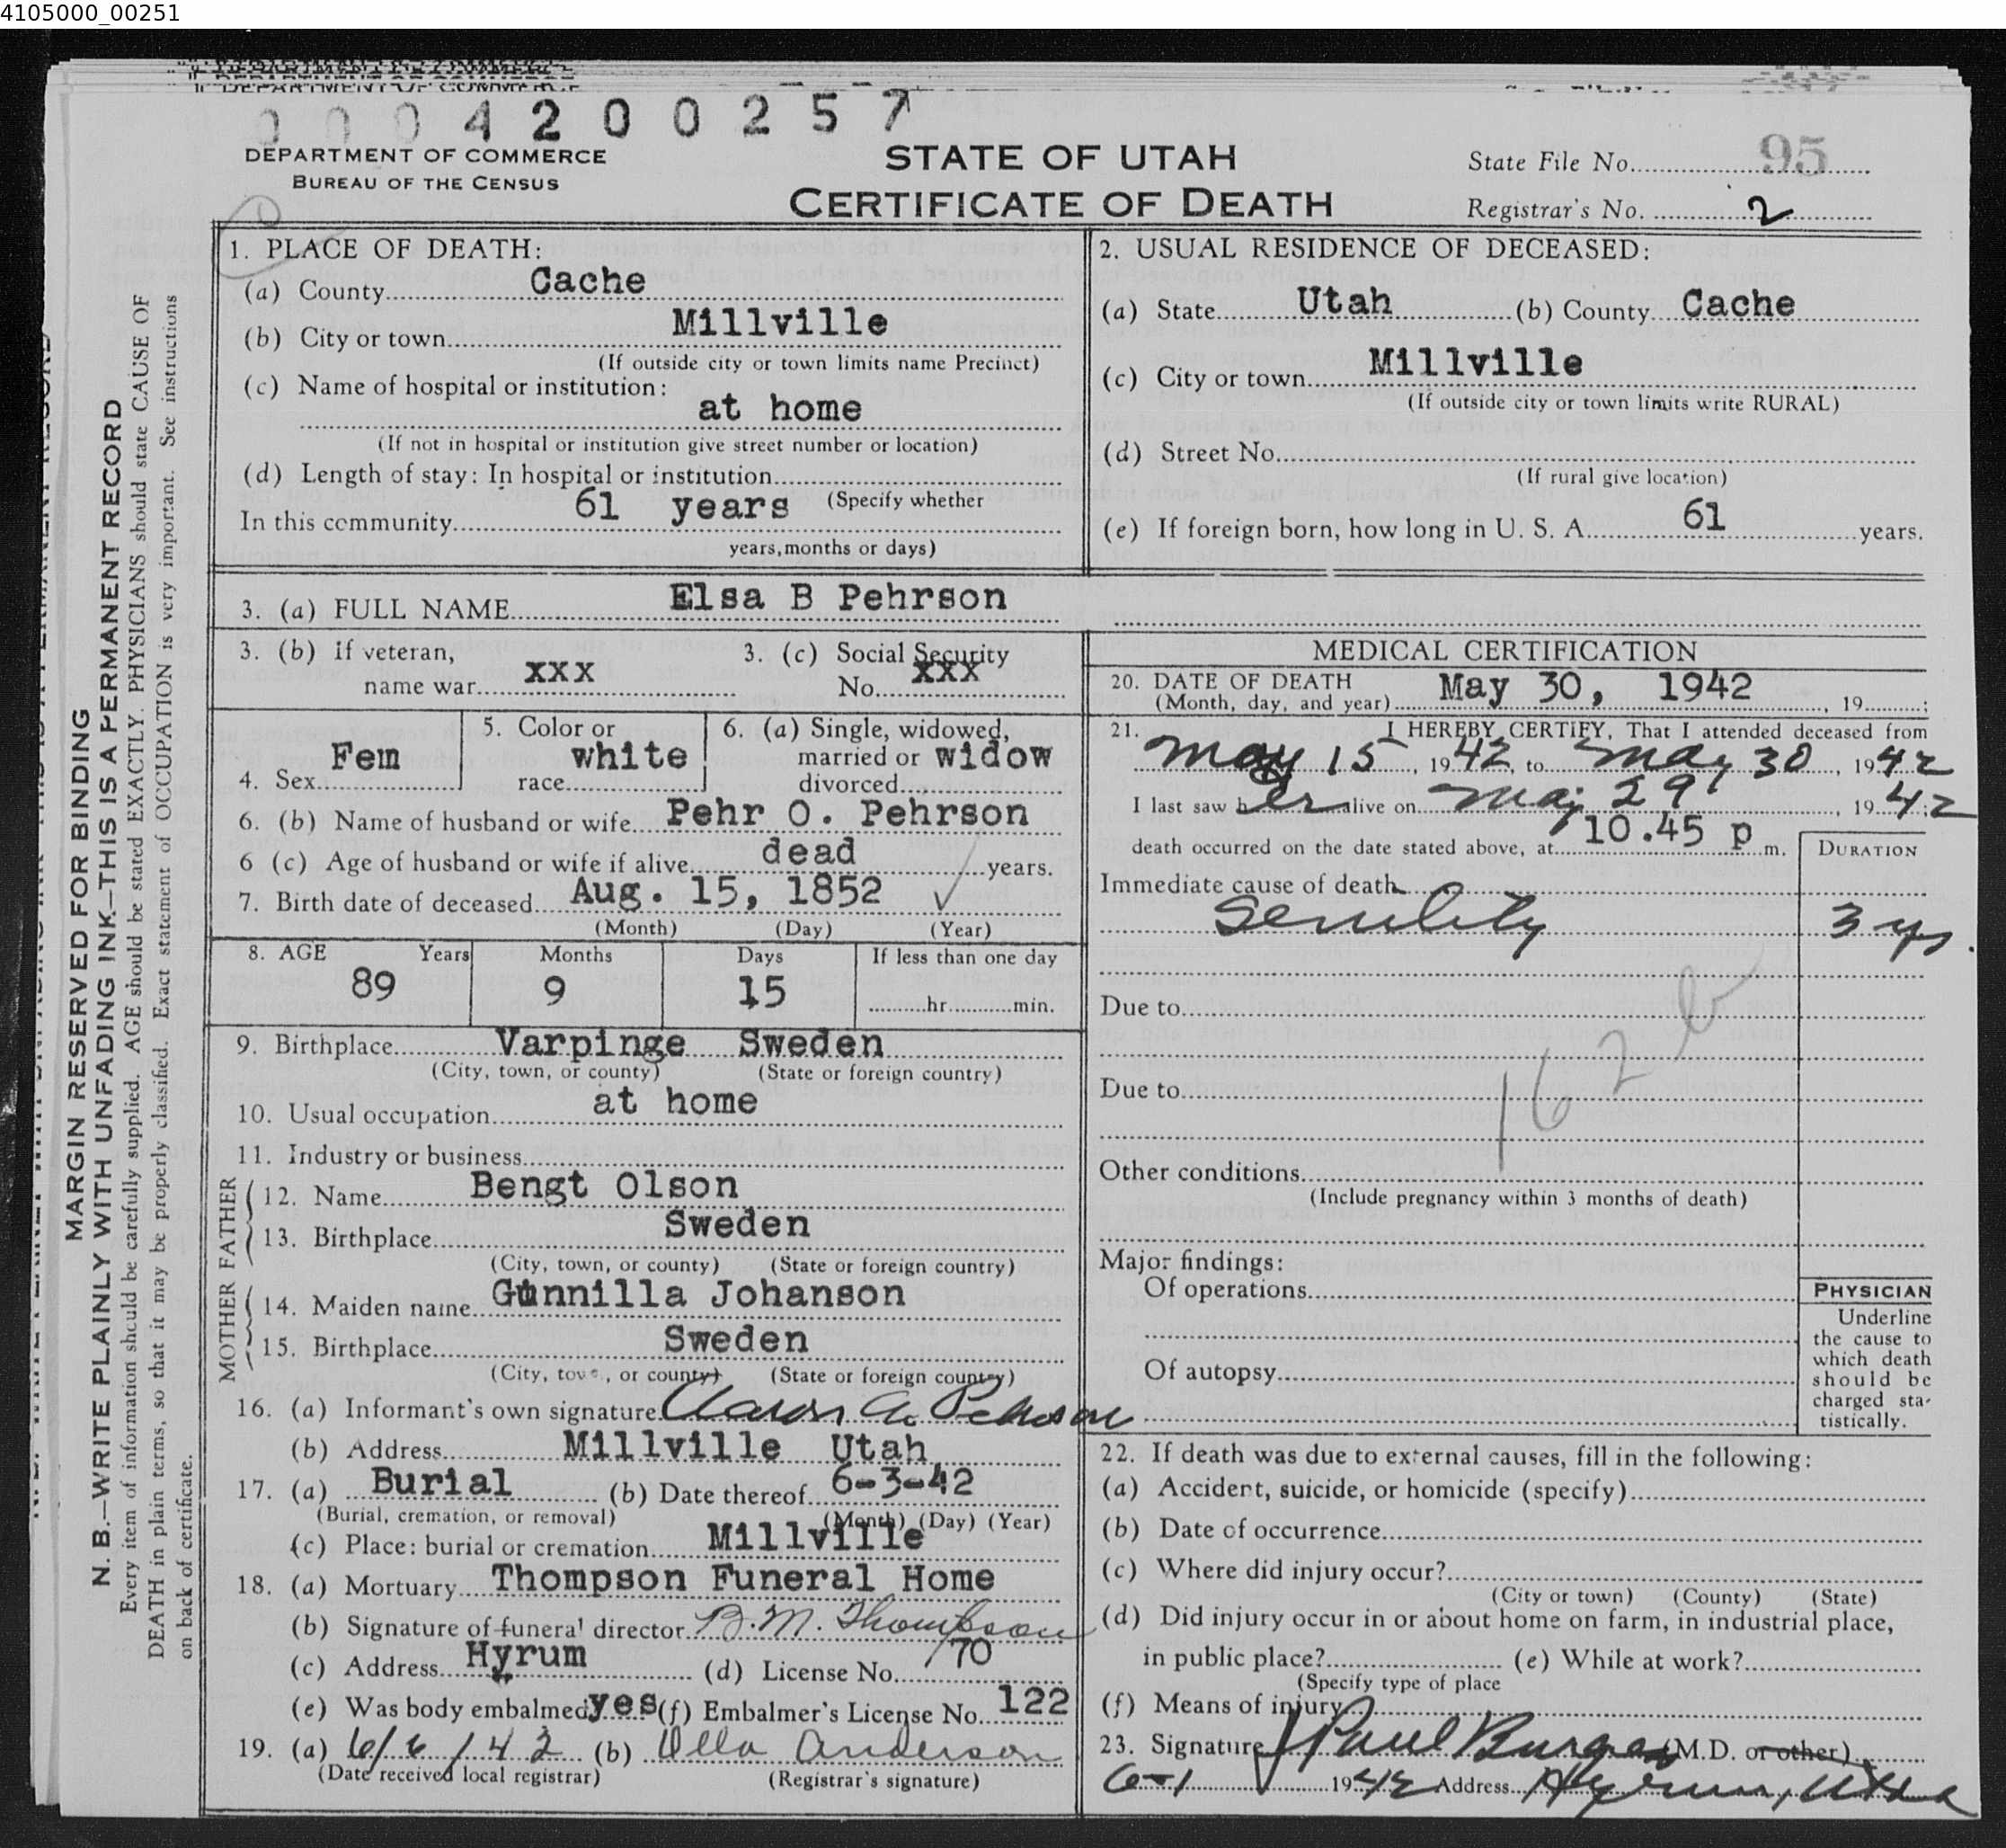 4105000_00251
0004200257
DEPARTMENT OF COMMERCE
BUREAU OF THE CENSUS
STATE OF UTAH
CERTIFICATE OF DEATH
State File No. 95
Registrar's No. 2
MARGIN RESERVED FOR BINDING
N. B.—WRITE PLAINLY WITH UNFADING INK—THIS IS A PERMANENT RECORD
Every item of information should be carefully supplied. AGE should be stated EXACTLY. PHYSICIANS should state CAUSE OF
DEATH in plain terms, so that it may be properly classified. Exact statement of OCCUPATION is very important. See instructions
on back of certificate.
1. PLACE OF DEATH:
(a) County Cache
(b) City or town Millville
(If outside city or town limits name Precinct)
(c) Name of hospital or institution:
at home
(If not in hospital or institution give street number or location)
(d) Length of stay: In hospital or institution
(Specify whether
In this community 61 years
years, months or days)
2. USUAL RESIDENCE OF DECEASED:
(a) State Utah (b) County Cache
(c) City or town Millville
(If outside city or town limits write RURAL)
(d) Street No.
(If rural give location)
(e) If foreign born, how long in U. S. A. 61 years.
3. (a) FULL NAME Elsa B Pehrson
3. (b) If veteran,
name war xxx
3. (c) Social Security
No. xxx
4. Sex Fem
5. Color or
race white
6. (a) Single, widowed,
married or widow
divorced
6. (b) Name of husband or wife Pehr O. Pehrson
6 (c) Age of husband or wife if alive dead years.
7. Birth date of deceased Aug. 15, 1852
(Month) (Day) (Year)
8. AGE Years Months Days If less than one day
89 9 15 hr. min.
9. Birthplace Varpinge Sweden
(City, town, or county) (State or foreign country)
10. Usual occupation at home
11. Industry or business
FATHER
12. Name Bengt Olson
13. Birthplace Sweden
(City, town, or county) (State or foreign country)
MOTHER
14. Maiden name Gunnilla Johanson
15. Birthplace Sweden
(City, town, or county) (State or foreign country)
16. (a) Informant's own signature Aaron A. Pehrson
(b) Address Millville Utah
17. (a) Burial (b) Date thereof 6-3-42
(Burial, cremation, or removal) (Month) (Day) (Year)
(c) Place: burial or cremation Millville
18. (a) Mortuary Thompson Funeral Home
(b) Signature of funeral director B. M. Thompson
(c) Address Hyrum (d) License No. 170
(e) Was body embalmed yes (f) Embalmer's License No. 122
19. (a) 6/6/42 (b) Ella Anderson
(Date received local registrar) (Registrar's signature)
MEDICAL CERTIFICATION
20. DATE OF DEATH
(Month, day, and year) May 30, 1942, 19 ;
21. I HEREBY CERTIFY, That I attended deceased from
May 15, 1942, to May 30, 1942
I last saw her alive on May 29, 1942;
death occurred on the date stated above, at 10.45 p m.
DURATION
Immediate cause of death
Senility 3 yrs.
Due to
162 b
Due to
Other conditions
(Include pregnancy within 3 months of death)
Major findings:
Of operations
Of autopsy
PHYSICIAN
Underline
the cause to
which death
should be
charged sta-
tistically.
22. If death was due to external causes, fill in the following:
(a) Accident, suicide, or homicide (specify)
(b) Date of occurrence
(c) Where did injury occur?
(City or town) (County) (State)
(d) Did injury occur in or about home on farm, in industrial place,
in public place? (e) While at work?
(Specify type of place
(f) Means of injury
23. Signature J Paul Burgess (M.D. or other)
6-1 1942 Address Hyrum, Utah